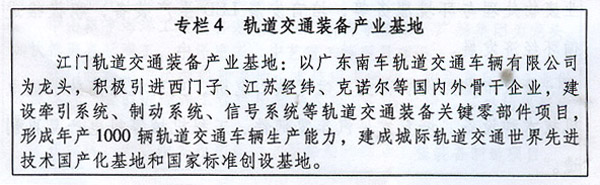 专栏4 轨道交通装备产业基地
江门轨道交通装备产业基地：以广东南车轨道交通车辆有限公司
为龙头，积极引进西门子、江苏经纬、克诺尔等国内外骨干企业，建
设牵引系统、制动系统、信号系统等轨道交通装备关键零部件项目，
形成年产1000辆轨道交通车辆生产能力，建成城际轨道交通世界先进
技术国产化基地和国家标准创设基地。